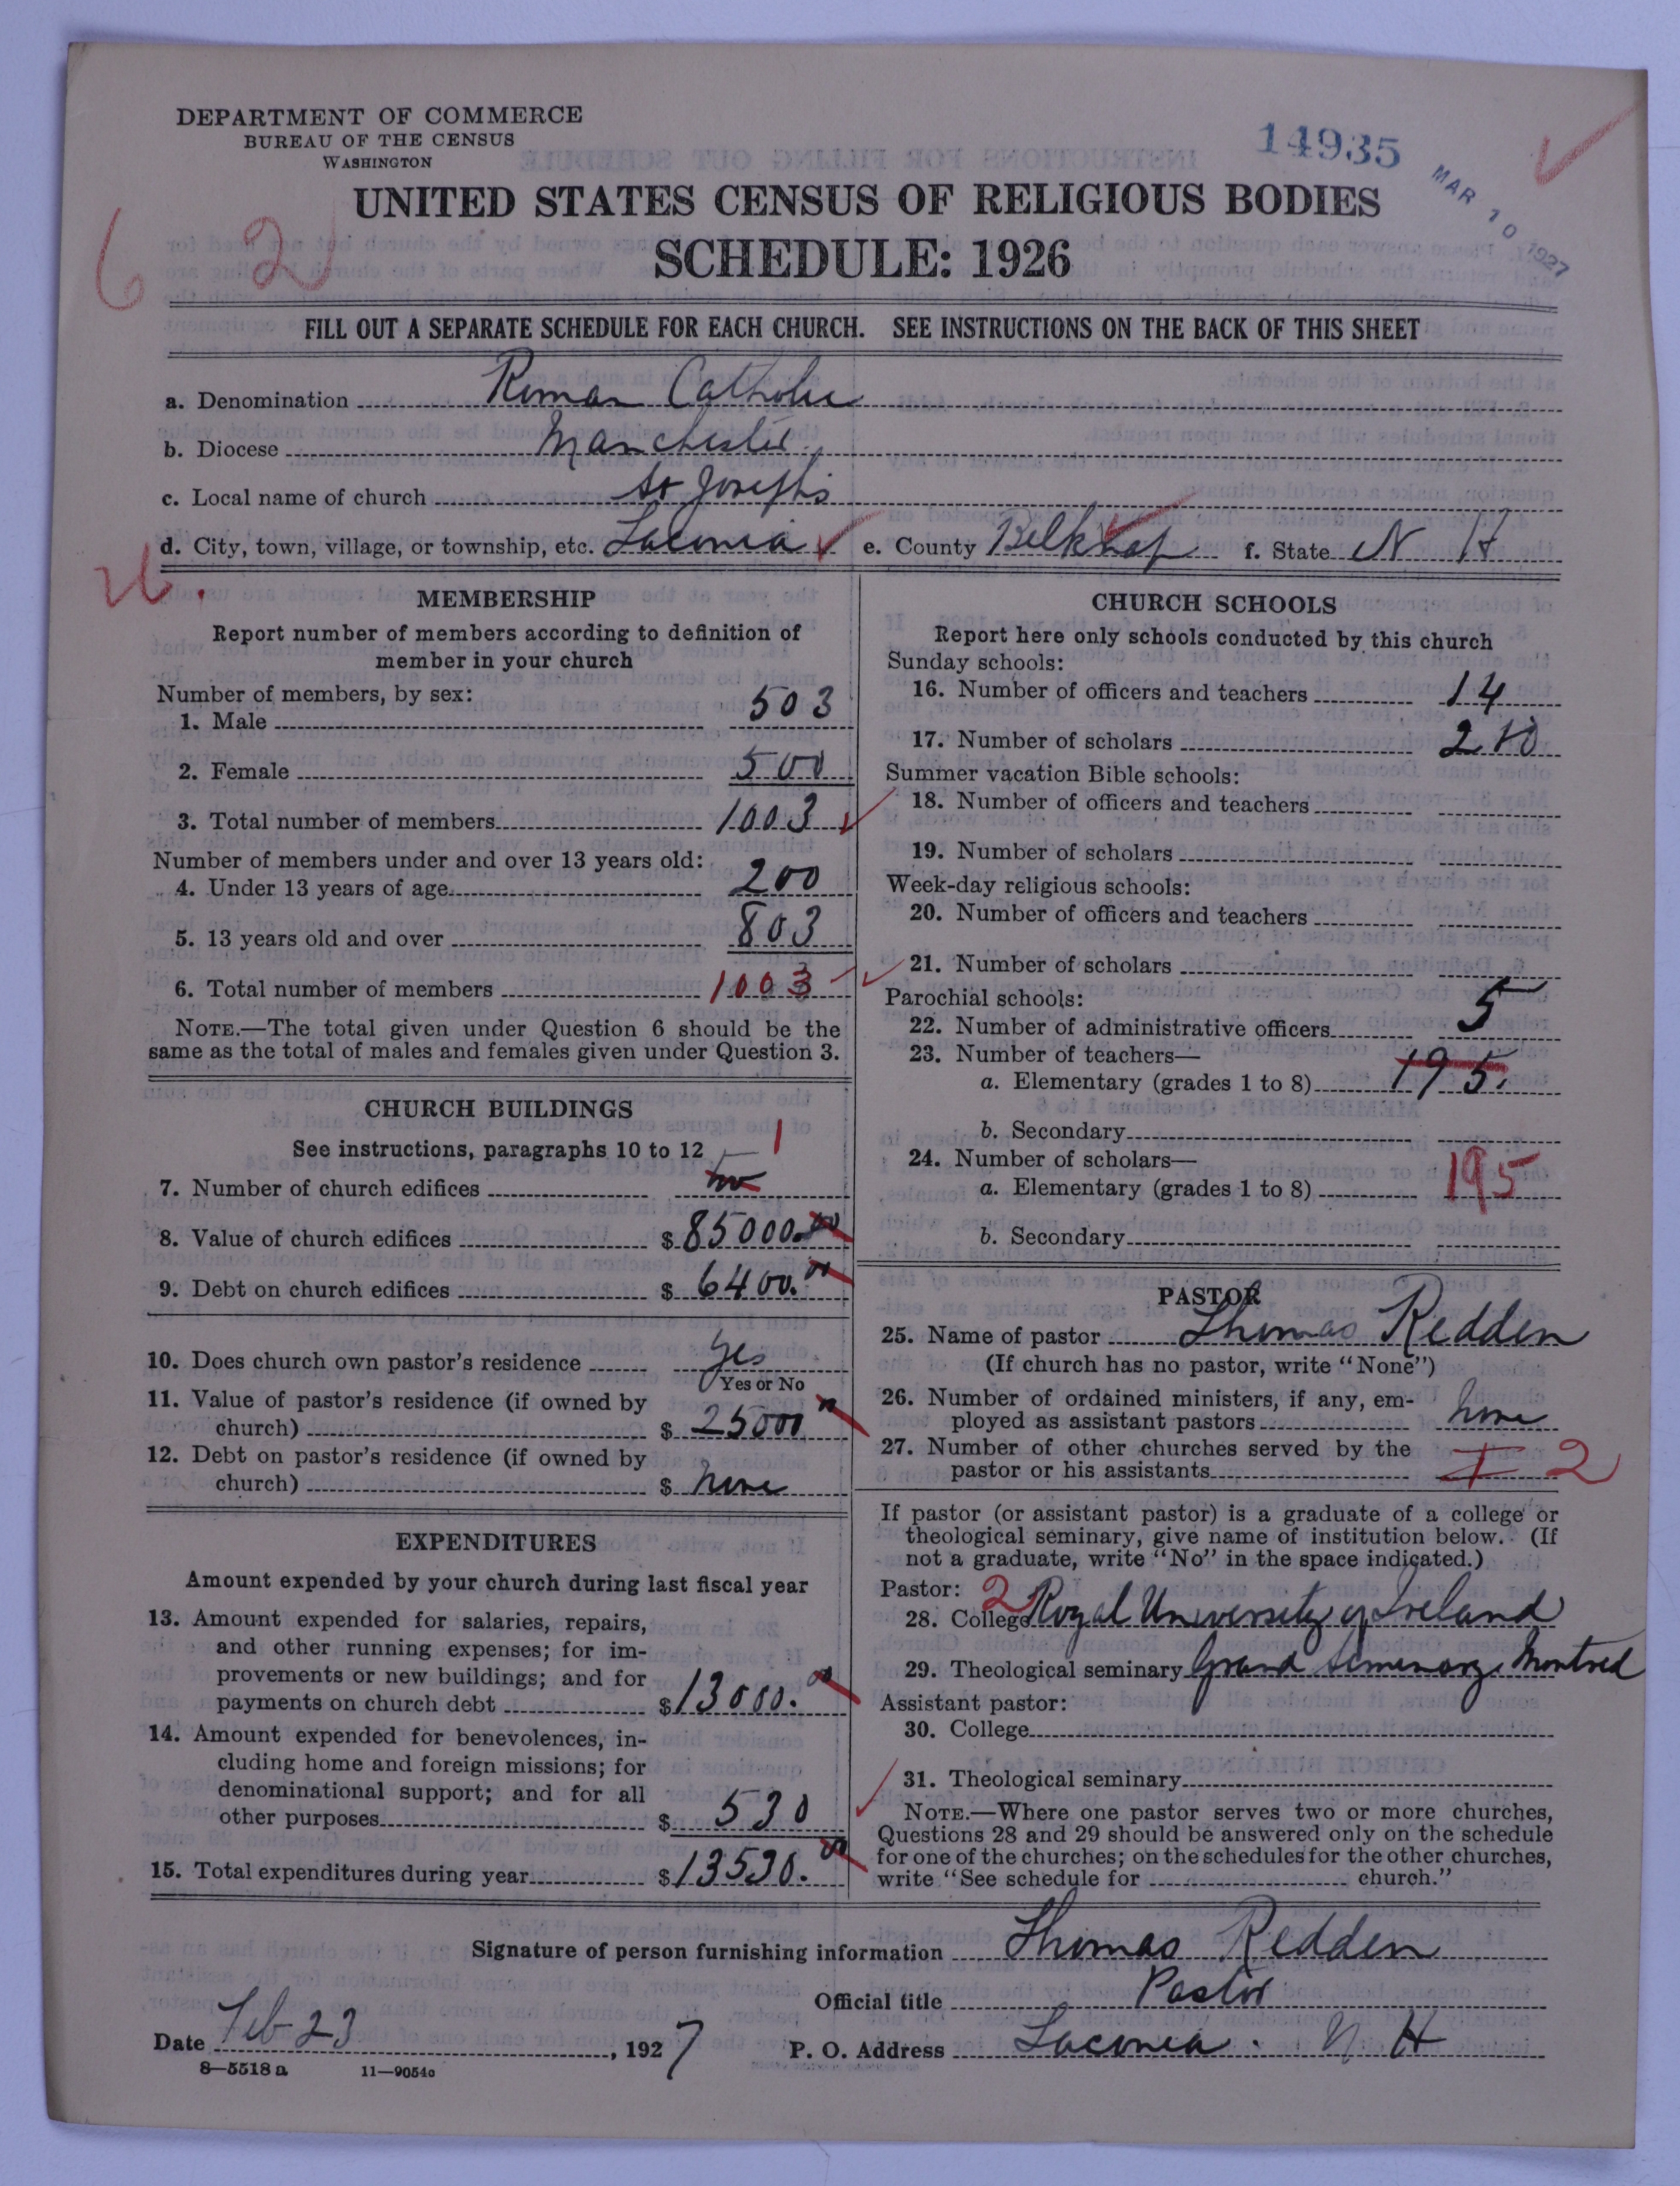 DEPARTMENT OF COMMERCE
BUREAU OF THE CENSUS
WASHINGTON
14935
MAR 10 1927
UNITED STATES CENSUS OF RELIGIOUS BODIES
SCHEDULE: 1926
6 2
FILL OUT A SEPARATE SCHEDULE FOR EACH CHURCH. SEE INSTRUCTIONS ON THE BACK OF THIS SHEET
a. Denomination Roman Catholic
b. Diocese Manchester
c. Local name of church St Joseph's
d. City, town, village, or township, etc. Laconia e. County Belknap f. State N H
MEMBERSHIP
Report number of members according to definition of
member in your church
Number of members, by sex:
1. Male 503
2. Female 500
3. Total number of members 1003
Number of members under and over 13 years old:
4. Under 13 years of age 200
5. 13 years old and over 803
6. Total number of members 1003
NOTE.—The total given under Question 6 should be the
same as the total of males and females given under Question 3.
CHURCH BUILDINGS
See instructions, paragraphs 10 to 12
7. Number of church edifices 1
8. Value of church edifices $ 85000.00
9. Debt on church edifices $ 6400.00
10. Does church own pastor's residence Yes
Yes or No
11. Value of pastor's residence (if owned by
church) $ 25000
12. Debt on pastor's residence (if owned by
church) $ none
EXPENDITURES
Amount expended by your church during last fiscal year
13. Amount expended for salaries, repairs,
and other running expenses; for im-
provements or new buildings; and for
payments on church debt $ 13000.00
14. Amount expended for benevolences, in-
cluding home and foreign missions; for
denominational support; and for all
other purposes $ 530
15. Total expenditures during year $ 13530.00
CHURCH SCHOOLS
Report here only schools conducted by this church
Sunday schools:
16. Number of officers and teachers 14
17. Number of scholars
Summer vacation Bible schools:
18. Number of officers and teachers
19. Number of scholars
Week-day religious schools:
20. Number of officers and teachers
21. Number of scholars
Parochial schools:
22. Number of administrative officers 5
23. Number of teachers—
a. Elementary (grades 1 to 8) 195.
b. Secondary
24. Number of scholars—
a. Elementary (grades 1 to 8) 195
b. Secondary
PASTOR
25. Name of pastor Thomas Redden
(If church has no pastor, write "None")
26. Number of ordained ministers, if any, em-
ployed as assistant pastors none
27. Number of other churches served by the
pastor or his assistants 1 2
If pastor (or assistant pastor) is a graduate of a college or
theological seminary, give name of institution below. (If
not a graduate, write "No" in the space indicated.)
Pastor: 2
28. College Royal University of Ireland
29. Theological seminary Grand Seminary Montreal
Assistant pastor:
30. College
31. Theological seminary
NOTE.—Where one pastor serves two or more churches,
Questions 28 and 29 should be answered only on the schedule
for one of the churches; on the schedules for the other churches,
write "See schedule for church."
Signature of person furnishing information Thomas Redden
Official title Pastor
Date Feb 23, 1927 P. O. Address Laconia. N H
8—5518a 11—9054c